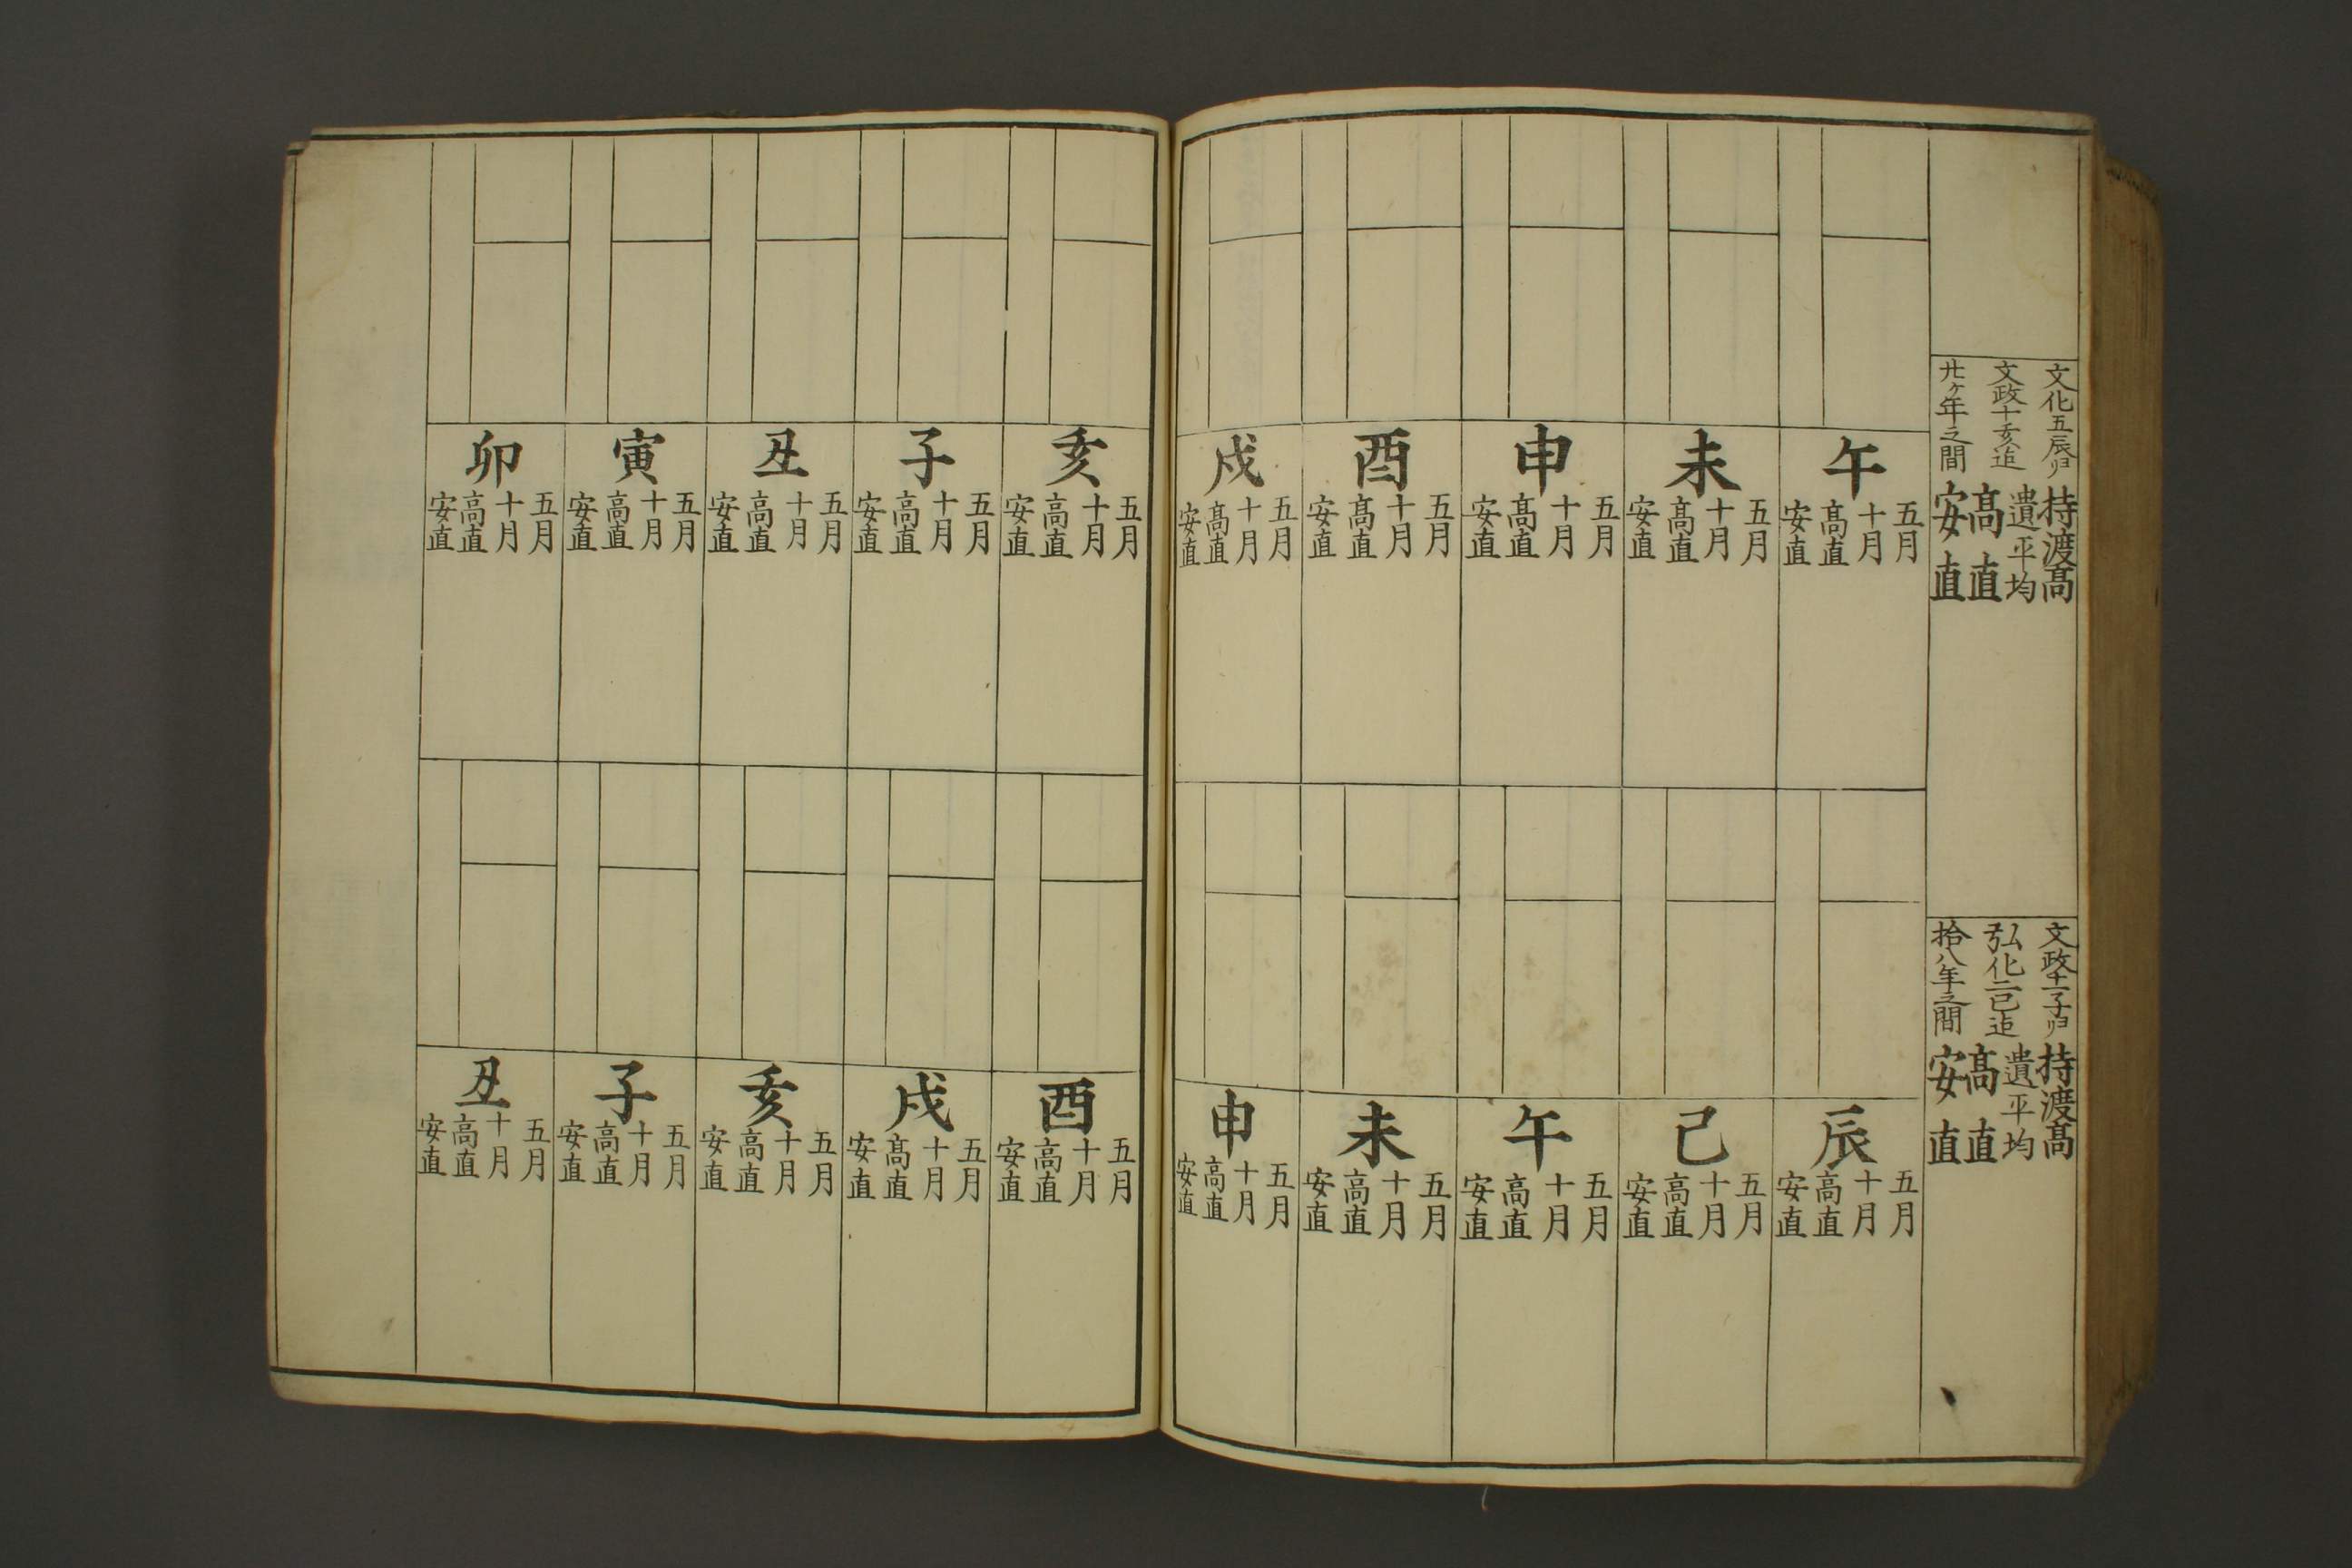 文化五辰ゟ
文政十亥迄
廿ヶ年之間
持渡髙
遺平均
髙直
安直
午
五月
十月
髙直
安直
未
五月
十月
髙直
安直
申
五月
十月
髙直
安直
酉
五月
十月
髙直
安直
戌
五月
十月
髙直
安直
文政十一子ゟ
弘化二巳迄
拾八年之間
持渡髙
遺平均
髙直
安直
辰
五月
十月
髙直
安直
巳
五月
十月
髙直
安直
午
五月
十月
髙直
安直
未
五月
十月
髙直
安直
申
五月
十月
髙直
安直
亥
五月
十月
髙直
安直
子
五月
十月
髙直
安直
丑
五月
十月
髙直
安直
寅
五月
十月
髙直
安直
卯
五月
十月
髙直
安直
酉
五月
十月
髙直
安直
戌
五月
十月
髙直
安直
亥
五月
十月
髙直
安直
子
五月
十月
髙直
安直
丑
五月
十月
髙直
安直